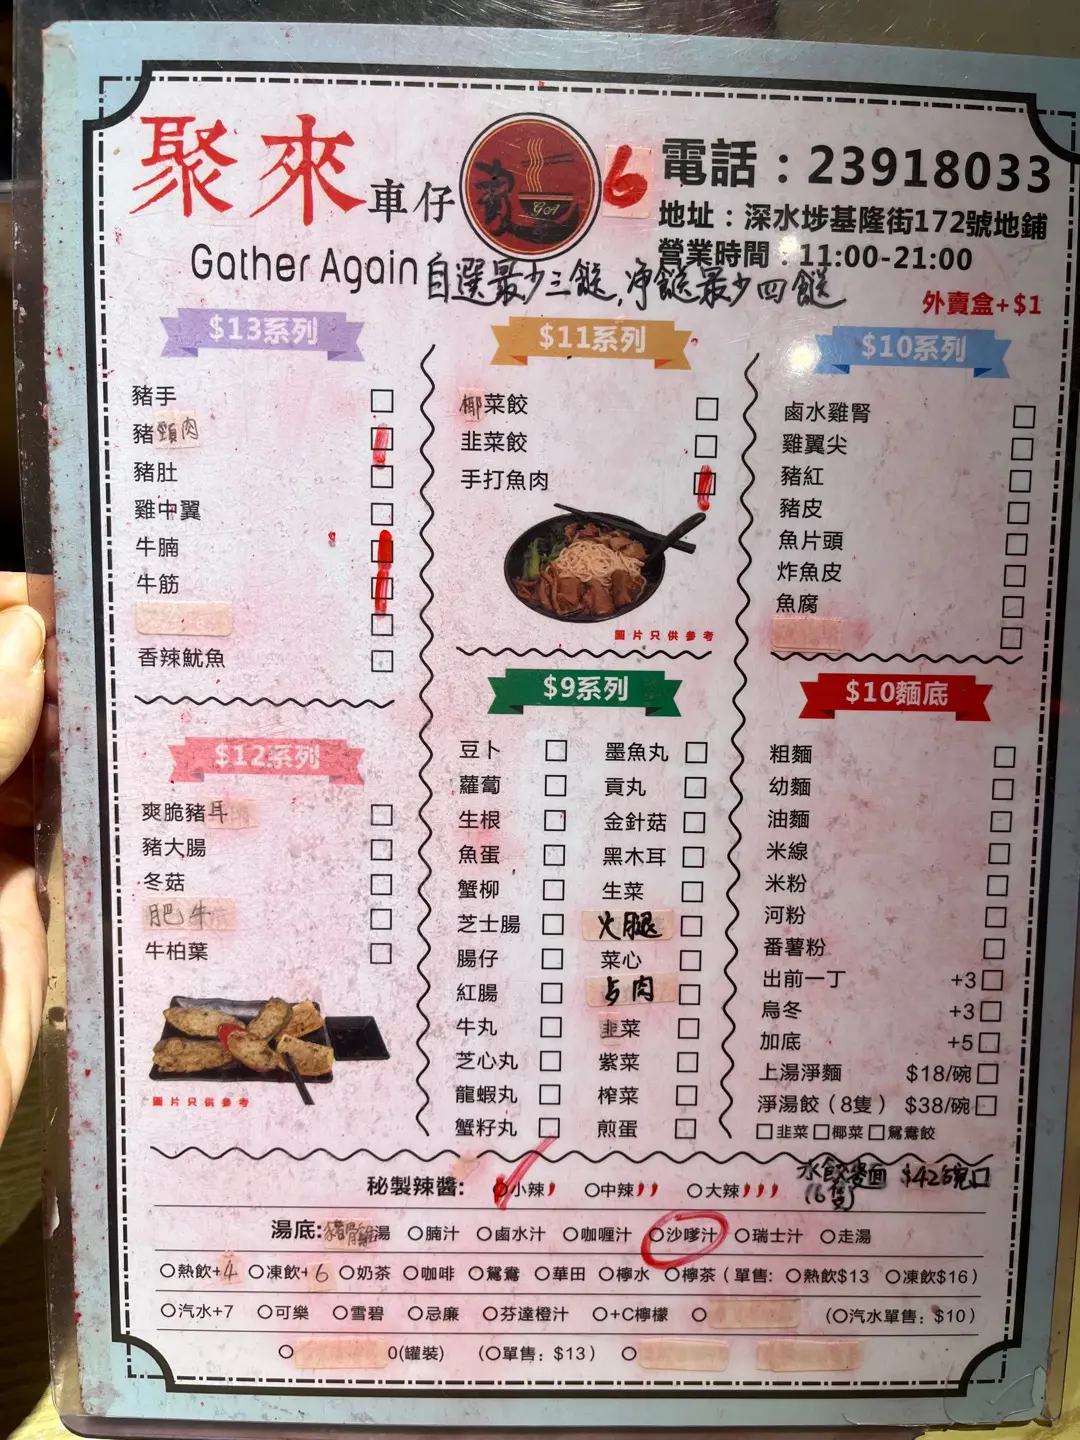 聚來車仔麵
GA
6
Gather Again
電話：23918033
地址：深水埗基隆街172號地鋪
營業時間：11:00-21:00
自選最少三餸,净餸最少四餸
外賣盒+$1
$13系列
豬手
豬頸肉
豬肚
雞中翼
牛腩
牛筋
香辣魷魚
$12系列
爽脆豬耳
豬大腸
冬菇
肥牛
牛柏葉
圖片只供參考
$11系列
椰菜餃
韭菜餃
手打魚肉
圖片只供參考
$9系列
豆卜
蘿蔔
生根
魚蛋
蟹柳
芝士腸
腸仔
紅腸
牛丸
芝心丸
龍蝦丸
蟹籽丸
墨魚丸
貢丸
金針菇
黑木耳
生菜
火腿
菜心
占肉
韭菜
紫菜
榨菜
煎蛋
$10系列
鹵水雞腎
雞翼尖
豬紅
豬皮
魚片頭
炸魚皮
魚腐
$10麵底
粗麵
幼麵
油麵
米線
米粉
河粉
番薯粉
出前一丁 +3
烏冬 +3
加底 +5
上湯淨麵 $18/碗
淨湯餃（8隻） $38/碗
韭菜 椰菜 鴛鴦餃
水餃麥面 $42碗
(6隻)
秘製辣醬: 小辣 中辣 大辣
湯底:豬骨雞湯 腩汁 鹵水汁 咖喱汁 沙嗲汁 瑞士汁 走湯
熱飲+4 凍飲+6 奶茶 咖啡 鴛鴦 華田 檸水 檸茶（單售: 熱飲$13 凍飲$16）
汽水+7 可樂 雪碧 忌廉 芬達橙汁 +C檸檬 （汽水單售: $10）
0(罐裝) （單售: $13）